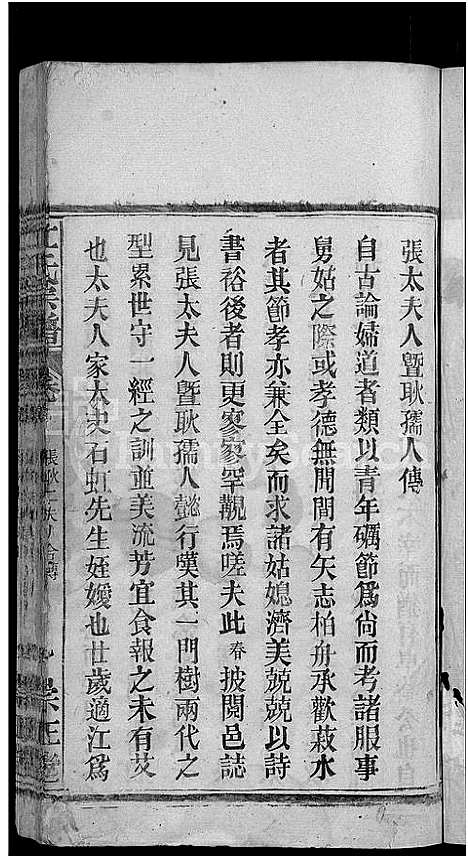 張太夫人暨耿孺人傳
自古論婦道者類以青年礪節爲尚而考諸服事
舅姑之際或孝德無聞間有矢志柏舟承歡菽水
者其節孝亦兼全矣而求諸姑媳濟美兢兢以詩
書裕後者則更寥寥罕覯焉嗟夫此春披閱邑誌
見張太夫人暨耿孺人懿行嘆其一門樹兩代之
型累世守一經之訓並美流芳宜食報之未有艾
也太夫人家太史石虹先生姪嫒也廿歲適江爲
江氏宗譜
卷
張耿二孺人合傳